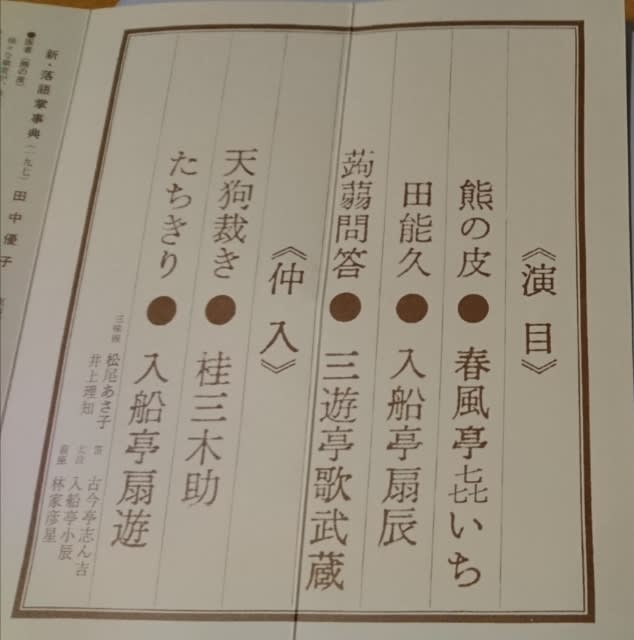 《演目》
熊の皮●春風亭㐂いち
田能久●入船亭扇辰
蒟蒻問答●三遊亭歌武蔵
《仲入》
天狗裁き●桂三木助
たちきり●入船亭扇遊
三味線 松尾あさ子
井上理知
笛 古今亭志ん吉
太鼓 入船亭小辰
前座 林家彦星
新・落語掌事典(一九七) 田中優子
●医者(熊の皮)